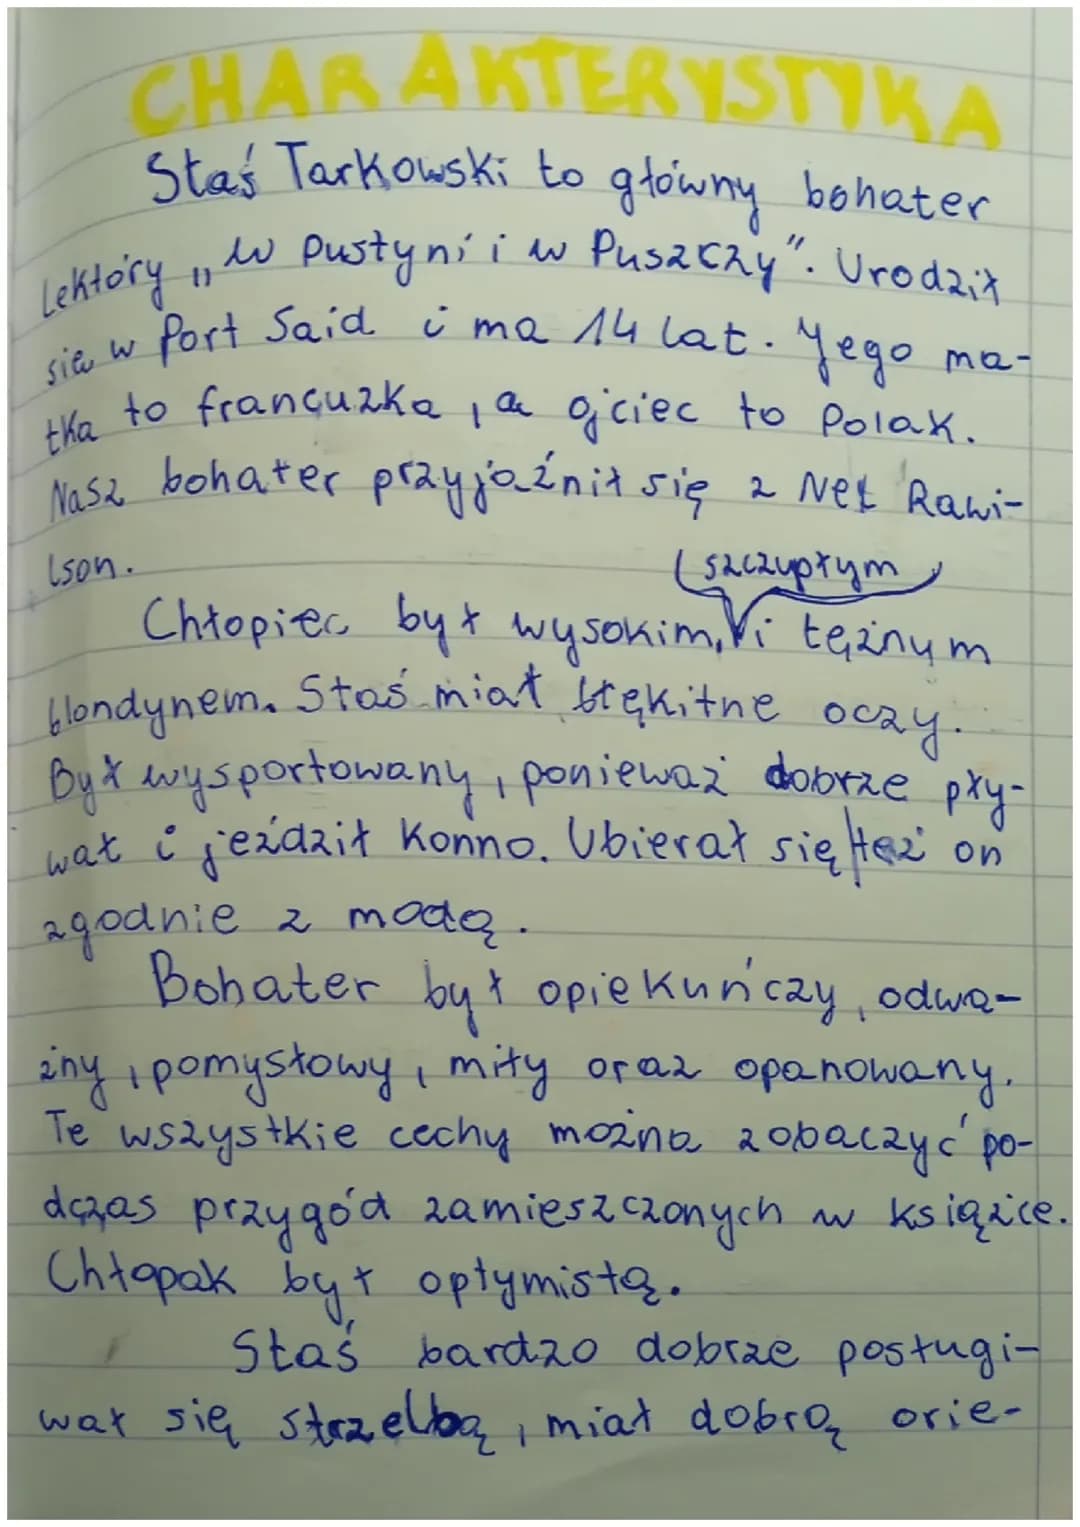 CHARAKTERYSTYKA
Staś Tarkowski to główny bohater
Lektóry „W Pustyni i w Puszczy". Urodził
się w Port Said i ma 14 lat. Jego ma-
tka to francuzka, a ojciec to Polak.
Nasz bohater przyjaźnił się z Nel Rawi-
lson.
szczupłym
Chłopiec był wysokim, i tężnym
blondynem. Staś miał błękitne oczy.
Był wysportowany, ponieważ dobrze pły-
wał i jeździł konno. Ubierał się też on
zgodnie z modą.
Bohater był opiekuńczy, odwa-
żny, pomysłowy, miły oraz opanowany.
Te wszystkie cechy można zobaczyć po-
dczas przygód zamieszczonych w książce.
Chłopak był optymistą.
Staś bardzo dobrze posługi-
wał się strzelbą, miał dobrą orie-